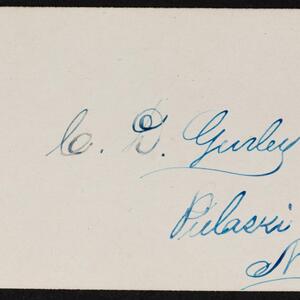 C. D. Gurley
Pulaski
N